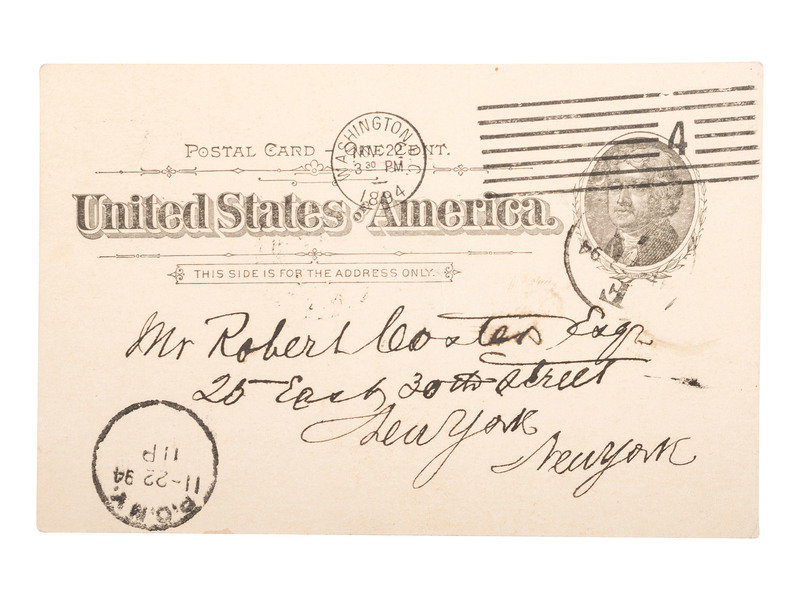 POSTAL CARD — ONE CENT.
WASHINGTON, D.C.
NOV 22
3 30 PM
1894
4
United States of America.
94
THIS SIDE IS FOR THE ADDRESS ONLY.
Mr Robert Coster Esqr
25 East 30th Street
New York
New York
P.O.N.Y.
11-22 94
11 P